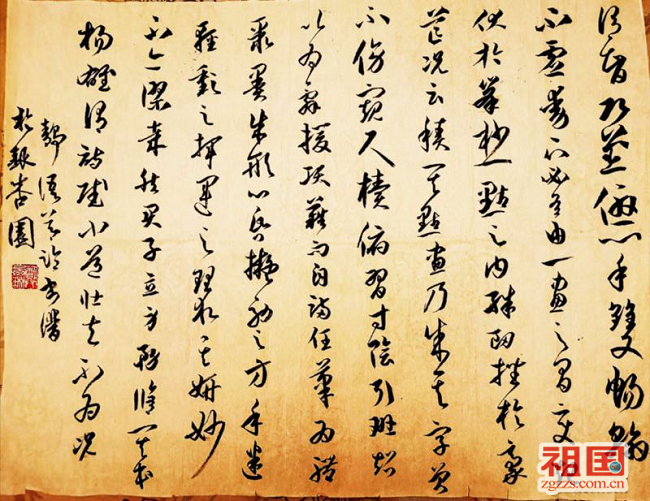 謂智巧兼優心手雙暢翰
不虛動下必有由一畫之間變起
伏於峯杪一點之內殊衄挫於豪
芒況云積其點畫乃成其字曾
不傍窺尺牘俯習寸陰引班超
以為辭援項籍而自滿任筆為體
聚墨成形心昏擬効之方手迷
揮運之理求其妍妙
不亦謬哉然君子立身務修其本
楊雄謂詩賦小道壯夫不為況
於銀杏園
祖国网
zgzzs.com.cn